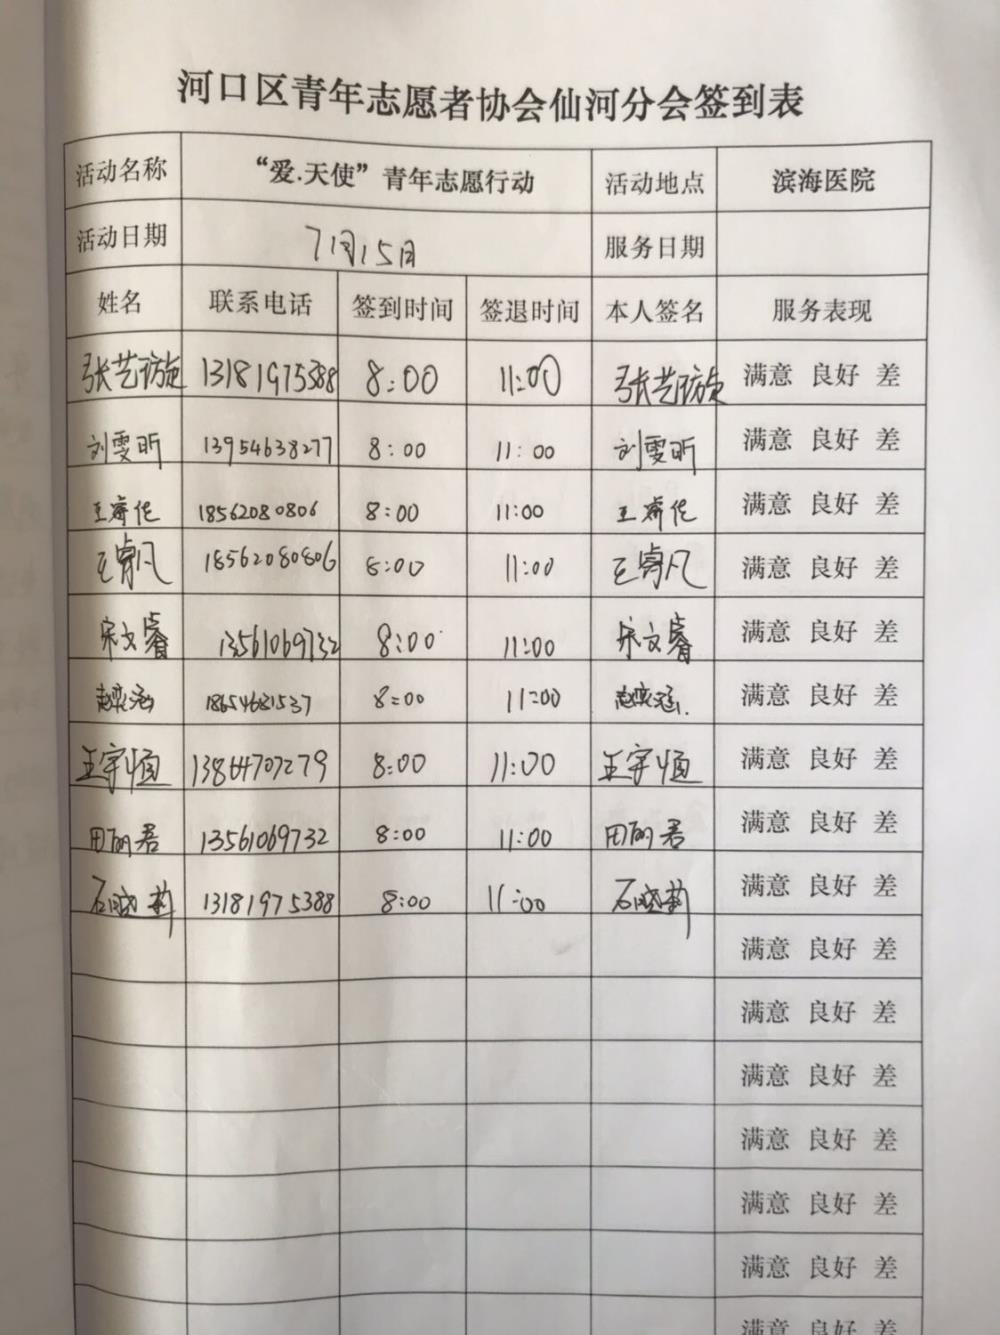 河口区青年志愿者协会仙河分会签到表
活动名称 “爱.天使”青年志愿行动 活动地点 滨海医院
活动日期 7月15日 服务日期
姓名 联系电话 签到时间 签退时间 本人签名 服务表现
张艺璇 13181975388 8:00 11:00 张艺璇 满意 良好 差
刘雯昕 13954638277 8:00 11:00 刘雯昕 满意 良好 差
王睿佗 18562080806 8:00 11:00 王睿佗 满意 良好 差
王睿凡 18562080806 8:00 11:00 王睿凡 满意 良好 差
宋文睿 13561069732 8:00 11:00 宋文睿 满意 良好 差
赵奕涵 18654681537 8:00 11:00 赵奕涵 满意 良好 差
王宇恒 13864707279 8:00 11:00 王宇恒 满意 良好 差
田丽君 13561069732 8:00 11:00 田丽君 满意 良好 差
石晓莉 13181975388 8:00 11:00 石晓莉 满意 良好 差
满意 良好 差
满意 良好 差
满意 良好 差
满意 良好 差
满意 良好 差
满意 良好 差
满意 良好 差